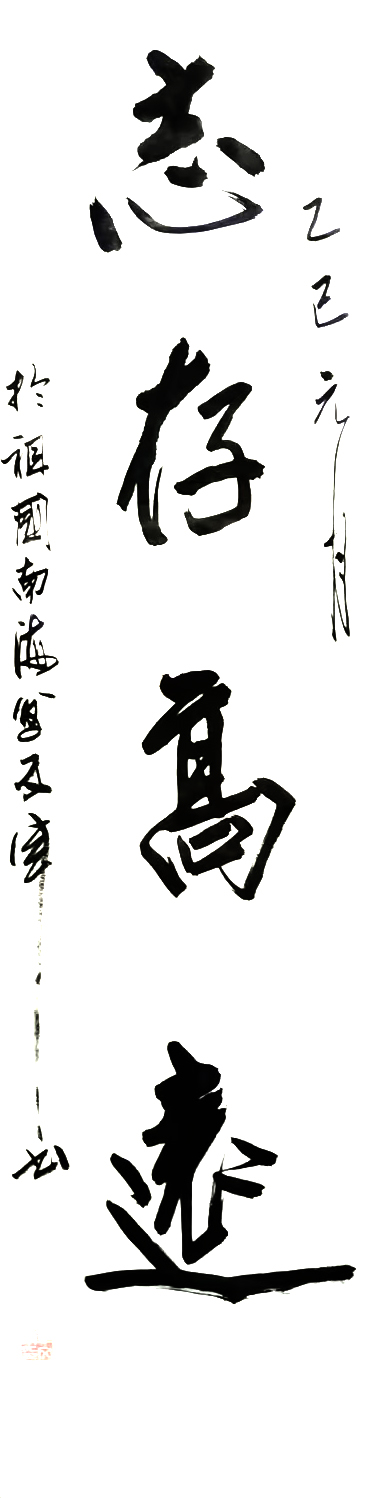 乙巳元月
志存高遠
於祖國南海 书